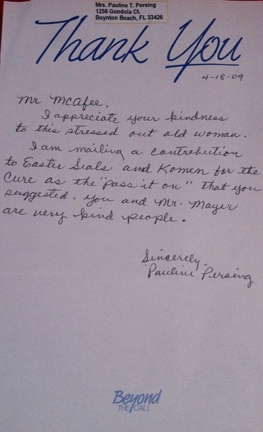 Mrs. Pauline T. Persing
1258 Gondola Ct.
Boynton Beach, FL 33426
Thank You
4-18-09
Mr McAfee,
I appreciate your kindness
to this stressed out old woman.
I am mailing a contribution
to Easter Seals and Komen for the
Cure as the "pass it on" that you
suggested. You and Mr. Mayer
are very kind people.
Sincerely,
Pauline Persing
Beyond
THE CALL